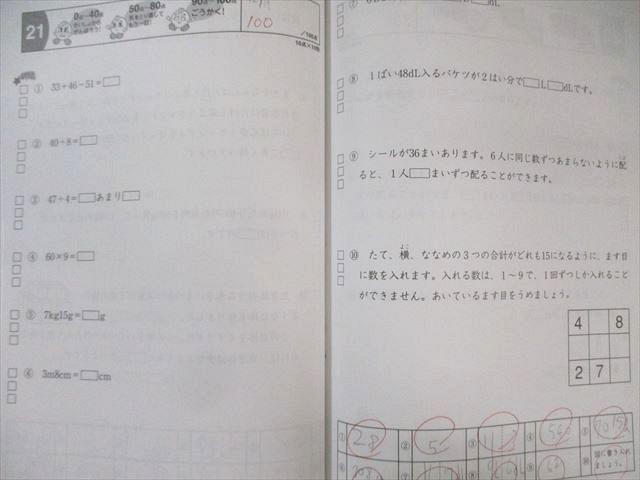 21
0点~40点
50点~80点
90点~100点
ごうかく!
100
/100点
10点×10問
① 33+46-51=□
② 40÷8=□
③ 47÷4=□あまり□
④ 60×9=□
⑤ 7kg15g=□g
⑥ 3m8cm=□cm
dL
⑧ 1ぱい48dL入るバケツが2はい分で□L□dLです。
⑨ シールが36まいあります。6人に同じ数ずつあまらないように配
ると、1人□まいずつ配ることができます。
⑩ たて、横、ななめの3つの合計がどれも15になるように、ます目
に数を入れます。入れる数は、1~9で、1回ずつしか入れること
ができません。あいているます目をうめましょう。
4 8
2 7
① 28 ② 5 ③ ④ ⑤
図に書き入れ
ましょう。